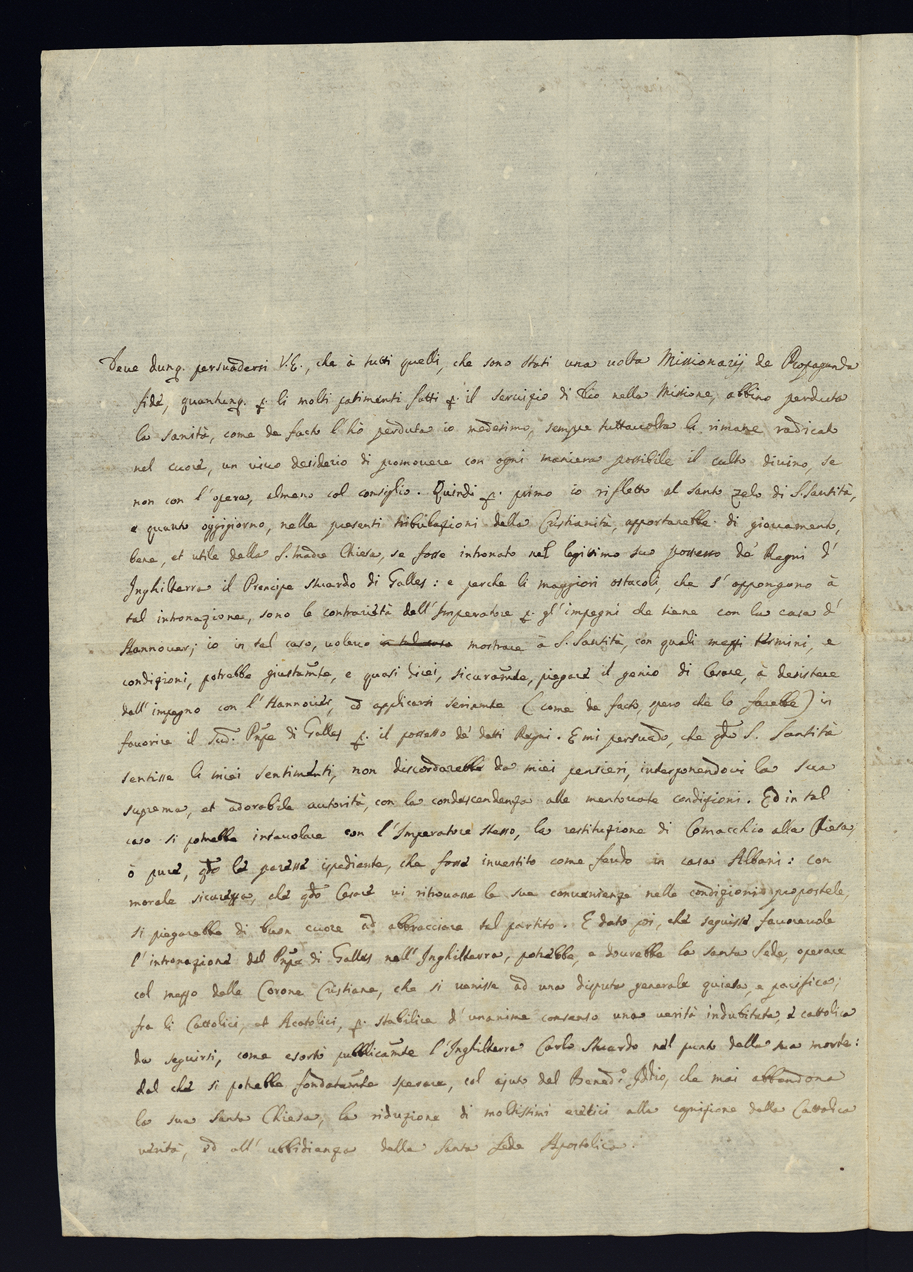 Deve dunq. persuadersi V.E., che à tutti quelli, che sono stati una volta Missionarij de Propaganda
fide, quantunq. p. li molti patimenti fatti p. il servizio di Dio nella Missione, abbino perduta
la sanità, come de facto l'hò perduta io medesimo, sempre tuttavolta li rimane radicato
nel cuore, un vivo desiderio di promovere con ogni maniera possibile il culto divino, se
non con l'opera, almeno col consiglio. Quindi p. primo io rifletto al santo zelo di S. Santità,
e quanto oggigiorno, nelle presenti tribulazioni della Cristianità, apportarebbe di giovamento,
bene, et utile della S. Madre Chiesa, se fosse intronato nel legitimo suo possesso de' Regni d'
Inghilterra il Prencipe Stuardo di Galles: e perche li maggiori ostacoli, che s'oppongono à
tal intronazione, sono le contrarietà dell'Imperatore p. gl'impegni che tiene con la casa d'
Hannover; io in tal caso, voleva in tal caso mostrare à S. Santità, con quali mezzi termini, e
condizioni, potrebbe giustamte, e quasi direi, sicuramte, piegare il genio di Cesare, à desistere
dall'impegno con l'Hannover, ed applicarsi seriamte (come de facto, spero che lo farebbe) in
favorire il Sud.o Pnpe di Galles p. il possesso de' detti Regni. E mi persuado, che qdo S. Santità
sentisse li miei sentimenti, non discordarebbe da miei pensieri, interponendovi la sua
suprema, et adorabile autorità, con la condescendenza alle mentovate condizioni. Ed in tal
caso si potrebbe intavolare con l'Imperatore stesso, la restituzione di Comacchio alla Chiesa;
ò pure, qdo le paresse ispediente, che fosse investito come feudo in casa Albani: con
morale sicurezza, che qdo Cesare vi ritrovasse la sua convenienza nelle condizioni propostele,
si piegarebbe di buon cuore ad abbracciare tal partito. E dato poi, che seguisse favorevole
l'intronazione del Pnpe di Galles nell'Inghilterra, potrebbe, e dovrebbe la Santa Sede, operare
col mezzo delle Corone Cristiane, che si venisse ad una disputa generale quieta, e pacifica,
fra li Cattolici, et Acatolici, p. stabilire d'unanime consenso una verità indubitata, e cattolica
da seguirsi, come esortò pubblicamte l'Inghilterra Carlo Stuardo nel punto della sua morte:
dal che si potrebbe fondatamte sperare, col ajuto del Bened.o Iddio, che mai abbandona
la sua Santa Chiesa, la riduzione di moltissimi eretici alla cognizione della Cattolica
verità, ed all'ubbidienza della Santa Sede Apostolica.